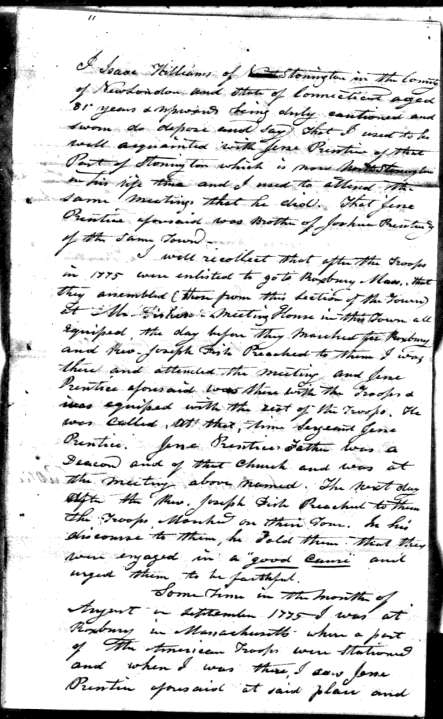 I Isaac Williams of Stonington in the County
of New London and State of Connecticut aged
81 years & upwards being duly cautioned and
sworn do depose and say that I used to be
well acquainted with Jese Prentice of that
Part of Stonington which is now North Stonington
in his life time and I used to attend the
same meetings that he did. That Jese
Prentice aforesaid was Brother of Joshua Prentice
of the same Town.
I well recollect that after the Troops
in 1775 were enlisted to go to Roxbury Mass. that
they assembled (those from this section of the Town)
at Mr. Fishes Meeting House in this Town all
equiped the day before they marched for Roxbury
and Rev. Joseph Fish Preached to them I was
there and attended the meeting and Jese
Prentice aforesaid was there with the Troops &
was equiped with the rest of the Troops. He
was called, at that, time Sergeant Jese
Prentice. Jese Prentice Father was a
Deacon and of that Church and was at
the meeting above named. The next day
after the Rev. Joseph Fish Preached to them
the Troops Marched on their Tour. In his
discourse to them, he Told them that they
were engaged in a "good cause" and
urged them to be faithful.
Some time in the month of
August or September 1775 I was at
Roxbury in Massachusetts where a part
of the American Troops were stationed
and when I was there, I saw Jese
Prentice aforesaid at said place and